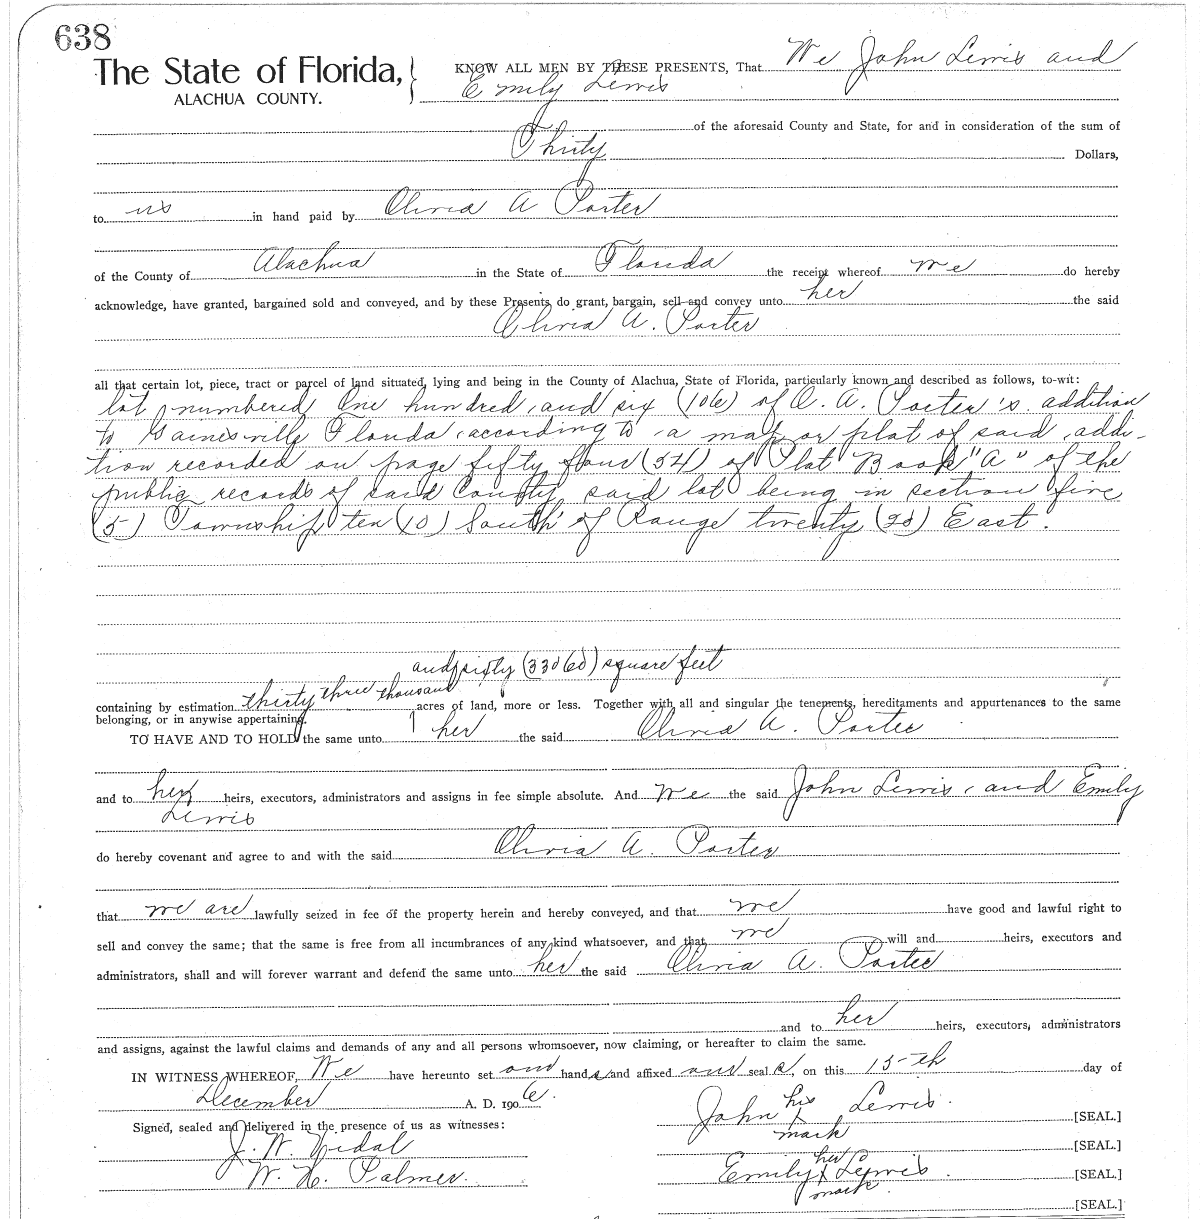 638
The State of Florida, KNOW ALL MEN BY THESE PRESENTS, That We John Lewis and
ALACHUA COUNTY. Emily Lewis
of the aforesaid County and State, for and in consideration of the sum of
Thirty Dollars,
to us in hand paid by Olivia A Porter
of the County of Alachua in the State of Florida the receipt whereof we do hereby
acknowledge, have granted, bargained sold and conveyed, and by these Presents do grant, bargain, sell and convey unto her the said
Olivia A. Porter
all that certain lot, piece, tract or parcel of land situated, lying and being in the County of Alachua, State of Florida, particularly known and described as follows, to-wit:
lot numbered One hundred and six (106) of O. A. Porter's addition
to Gainesville Florida according to a map or plat of said addi-
tion recorded on page fifty four (54) of Plat Book "A" of the
public records of said County, said lot being in section five
(5) Township ten (10) South of Range twenty (20) East.
and sixty (33060) square feet
containing by estimation thirty three thousand acres of land, more or less. Together with all and singular the tenements, hereditaments and appurtenances to the same
belonging, or in anywise appertaining.
TO HAVE AND TO HOLD the same unto her the said Olivia A. Porter
and to her heirs, executors, administrators and assigns in fee simple absolute. And we the said John Lewis, and Emily
Lewis
do hereby covenant and agree to and with the said Olivia A. Porter
that we are lawfully seized in fee of the property herein and hereby conveyed, and that we have good and lawful right to
sell and convey the same; that the same is free from all incumbrances of any kind whatsoever, and that we will and heirs, executors and
administrators, shall and will forever warrant and defend the same unto her the said Olivia A. Porter
and to her heirs, executors, administrators
and assigns, against the lawful claims and demands of any and all persons whomsoever, now claiming, or hereafter to claim the same.
IN WITNESS WHEREOF, We have hereunto set our hands and affixed our seals, on this 15th day of
December A. D. 1906.
Signed, sealed and delivered in the presence of us as witnesses:
J. W. Vidal
W. H. Palmer.
John his x mark Lewis. [SEAL.]
[SEAL.]
Emily her x mark Lewis. [SEAL.]
[SEAL.]